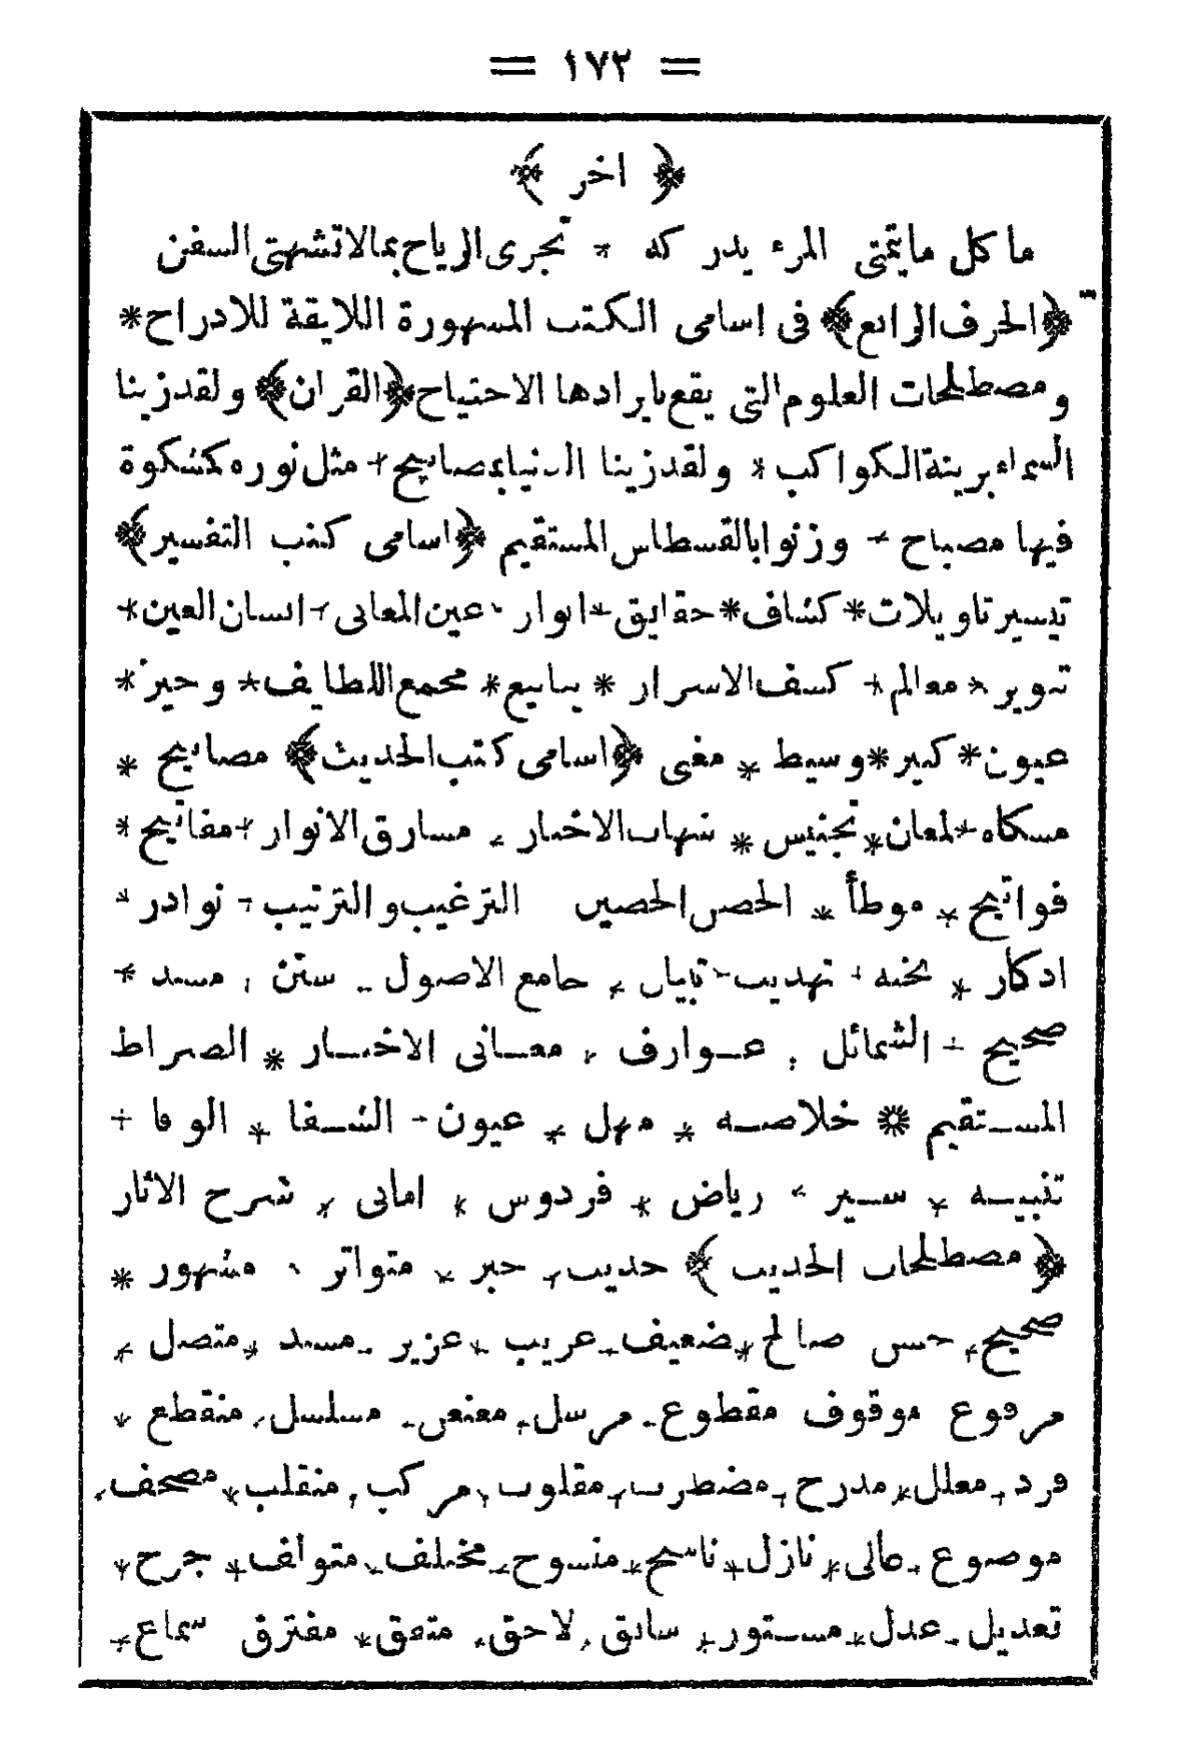 = ١٧٢ =
﴿ اخر ﴾
ما كل ما يتمنى المرء يدركه * تجرى الرياح بمالا تشتهى السفن
﴿الحرف الرابع﴾ فى اسامى الكتب المشهورة اللايقة للادراج *
ومصطلحات العلوم التى يقع بايرادها الاحتياج ﴿القران﴾ ولقد زينا
السماء بزينة الكواكب * ولقد زينا الدنيا بمصابيح * مثل نوره كمشكوة
فيها مصباح * وزنوا بالقسطاس المستقيم ﴿اسامى كتب التفسير﴾
تيسير تاويلات * كشاف * حقايق * انوار * عين المعانى * انسان العين *
تنوير * معالم * كشف الاسرار * ينابيع * مجمع اللطايف * وجيز *
عيون * كبير * وسيط * مغنى ﴿اسامى كتب الحديث﴾ مصابيح *
مشكاه * لمعان * تجنيس * شهاب الاخبار * مشارق الانوار * مفاتيح *
فواتيح * موطأ * الحصن الحصين الترغيب والترتيب * نوادر *
اذكار * نخبه * تهذيب * تبيان * جامع الاصول * سنن * مسند *
صحيح * الشمائل * عوارف * معانى الاخبار * الصراط
المستقيم * خلاصه * منهل * عيون * الشفا * الوفا *
تنبيه * سير * رياض * فردوس * امانى * شرح الاثار
﴿ مصطلحات الحديث ﴾ حديث * خبر * متواتر * مشهور *
صحيح * حسن صالح * ضعيف * غريب * عزيز * مسند * متصل *
مرفوع موقوف مقطوع * مرسل * معنعن * مسلسل * منقطع *
فرد * معلل * مدرج * مضطرب * مقلوب * مركب * منقلب * مصحف *
موضوع * عالى * نازل * ناسخ * منسوخ * مختلف * متوالف * جرح *
تعديل * عدل * مستور * سابق * لاحق * متفق * مفترق سماع *